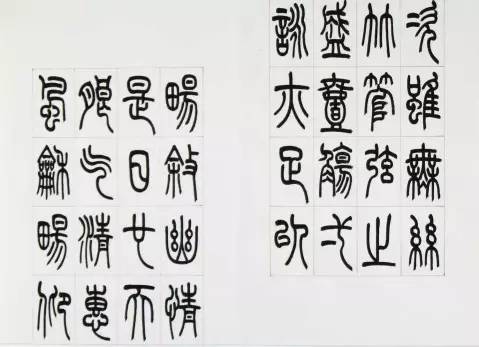 次雖無絲
竹管弦之
盛壹觴弌
詠亦足以
暢敘幽情
是日也天
朗气清惠
風龢暢仰